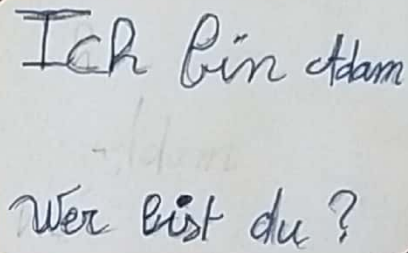 Ich bin Adam
Wer bist du?